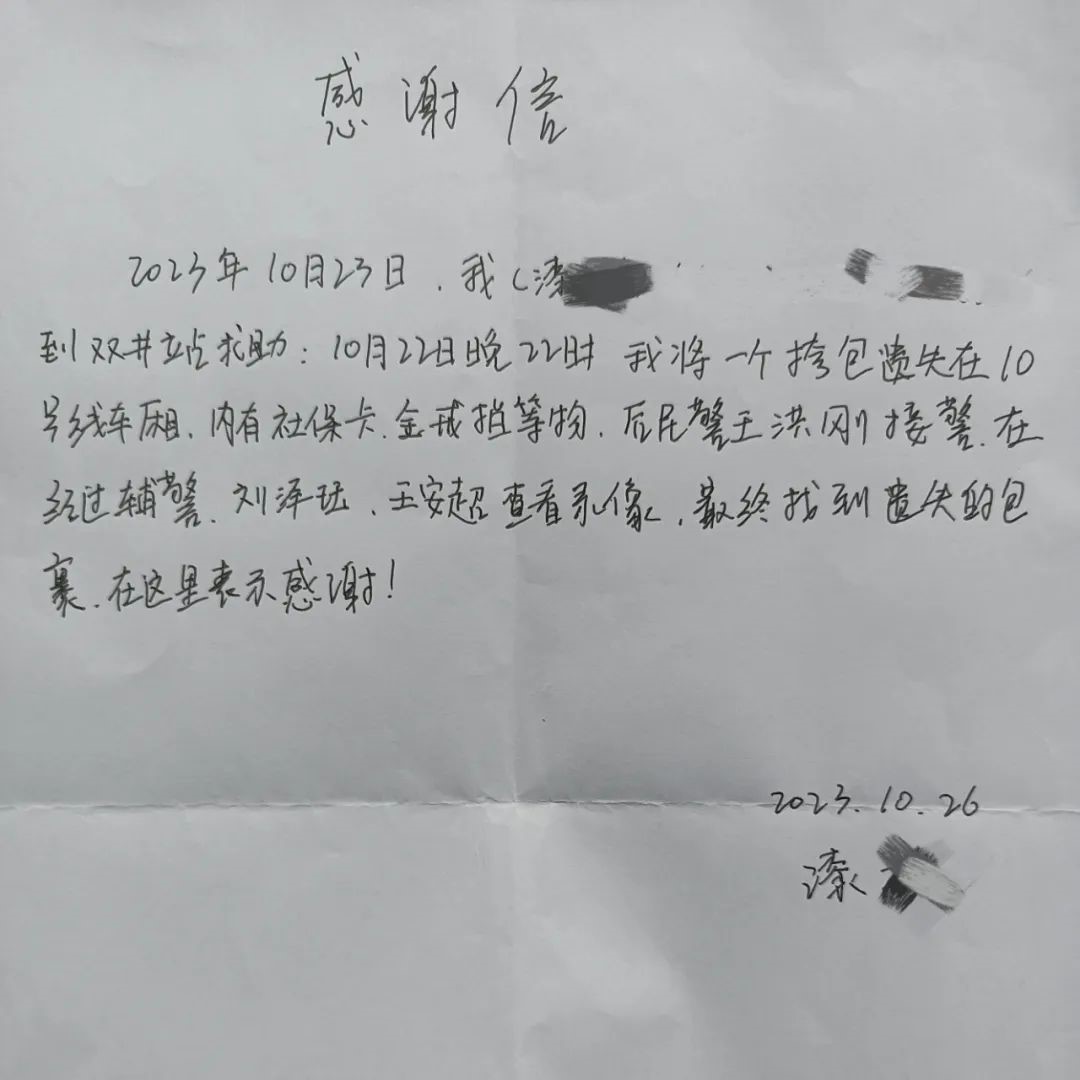 感谢信
2023年10月23日,我(漆
到双井站求助:10月22日晚22时 我将一个挎包遗失在10
号线车厢、内有社保卡、金戒指等物、后民警王洪刚接警、在
经过辅警、刘泽 、王安超查看录像,最终找到遗失的包
裹、在这里表示感谢!
2023.10.26
漆